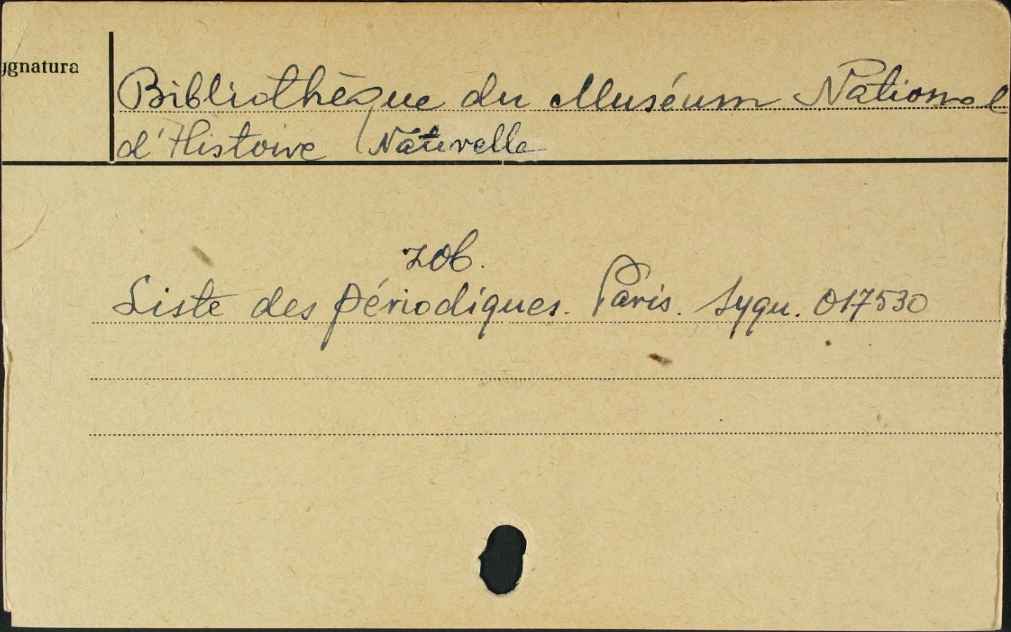 ygnatura
Bibliothèque du Muséum National
d'Histoire Naturelle
zob.
Liste des périodiques. Paris. Sygn. 017530